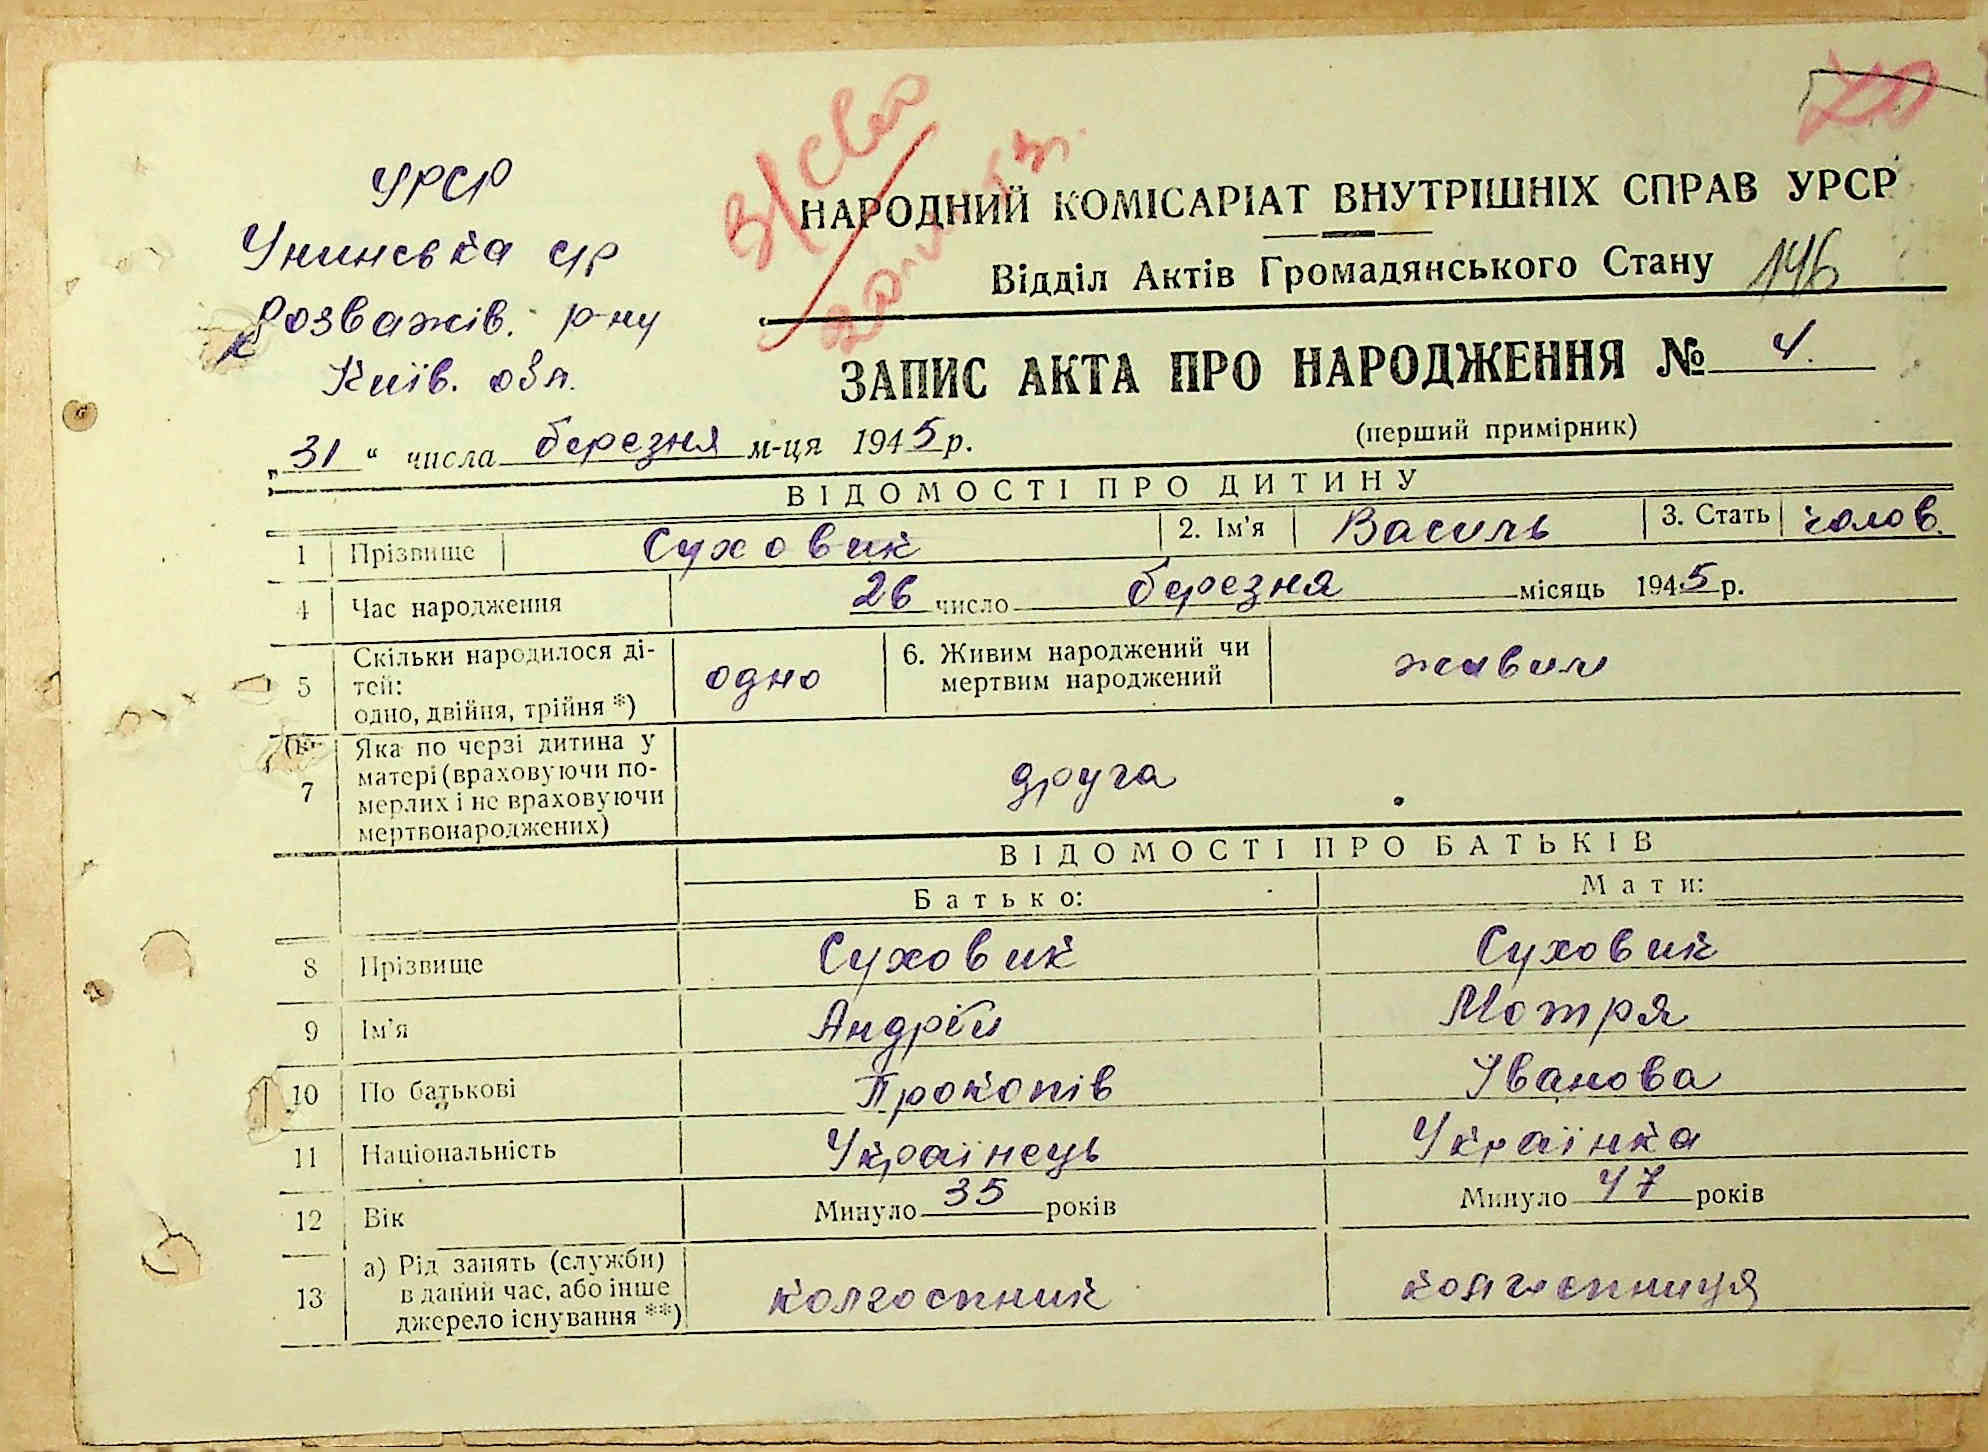 УРСР
Унинська с/р
Розважів. р-ну
Київ. обл.
НАРОДНИЙ КОМІСАРІАТ ВНУТРІШНІХ СПРАВ УРСР
Відділ Актів Громадянського Стану 146
ЗАПИС АКТА ПРО НАРОДЖЕННЯ № 4.
(перший примірник)
„31“ числа березня м-ця 1945 р.
ВІДОМОСТІ ПРО ДИТИНУ
1 Прізвище Суховик 2. Ім'я Василь 3. Стать чолов.
4 Час народження 26 число березня місяць 1945 р.
5 Скільки народилося ді-
тей:
одно, двійня, трійня *) одно 6. Живим народжений чи
мертвим народжений живим
7 Яка по черзі дитина у
матері (враховуючи по-
мерлих і не враховуючи
мертвонароджених) друга
ВІДОМОСТІ ПРО БАТЬКІВ
Батько: Мати:
8 Прізвище Суховик Суховик
9 Ім'я Андрій Мотря
10 По батькові Прокопів Іванова
11 Національність Українець Українка
12 Вік Минуло 35 років Минуло 47 років
13 а) Рід занять (служби)
в даний час, або інше
джерело існування **) колгоспник колгоспниця